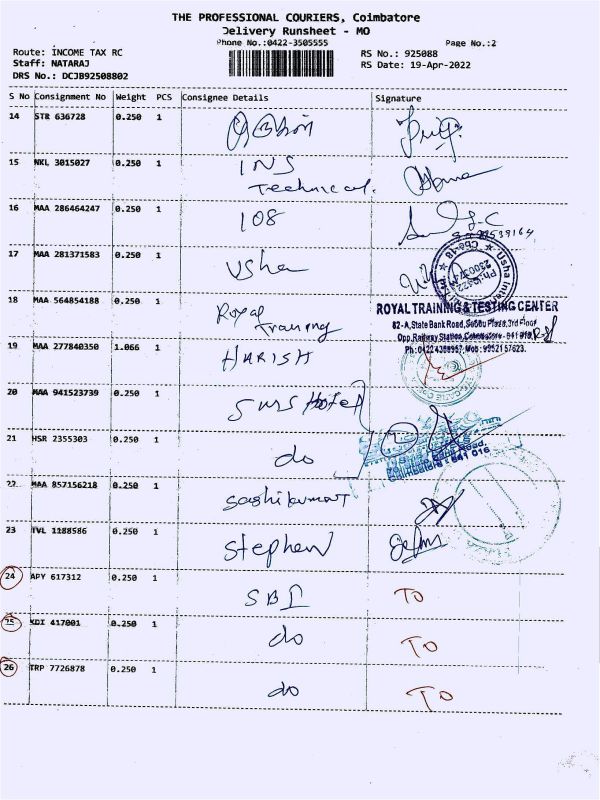 THE PROFESSIONAL COURIERS, Coimbatore
Delivery Runsheet - MO
Phone No.:0422-3505555
Page No.:2
Route: INCOME TAX RC
Staff: NATARAJ
DRS No.: DCJB92508802
RS No.: 925088
RS Date: 19-Apr-2022
S No Consignment No Weight PCS Consignee Details Signature
14 STR 636728 0.250 1
15 NKL 3015027 0.250 1 INS
Technical.
16 MAA 286464247 0.250 1 108
17 MAA 281371583 0.250 1 Usha
18 MAA 564854188 0.250 1 Royal
Training
ROYAL TRAINING & TESTING CENTER
82-A, State Bank Road, Plaza, 3rd Floor
Opp. Railway Station, Coimbatore - 641 018
19 MAA 277840350 1.066 1 HARISH
20 MAA 941523739 0.250 1 SMS Hotel
21 HSR 2355303 0.250 1 do
Bank Road,
Coimbatore - 641 018
22 MAA 857156218 0.250 1 Sashikumar
23 TVL 1188586 0.250 1 Stephen
24 APY 617312 0.250 1 SBI TO
25 KDI 417001 0.250 1 do TO
26 TRP 7726878 0.250 1 do TO